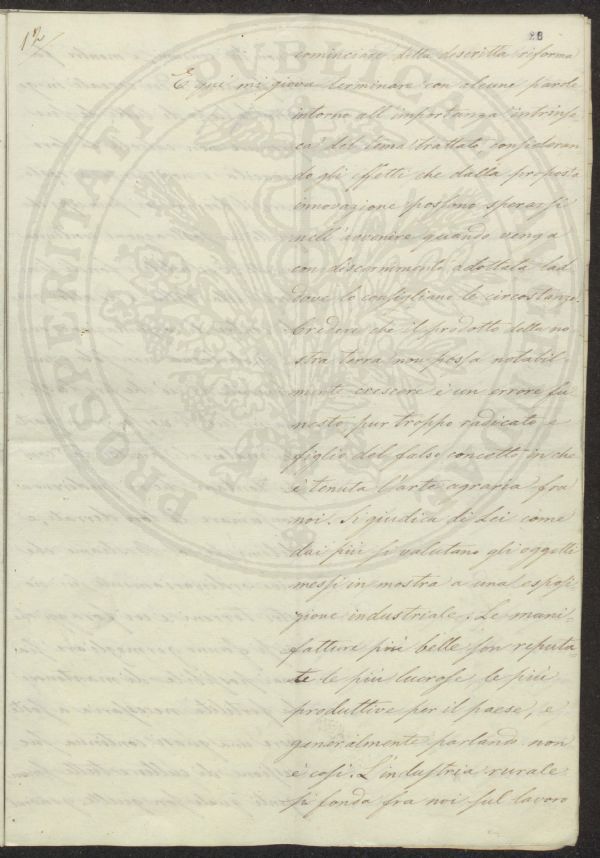 12/
28
cominciare detta descritta riforma
E qui mi giova terminare con alcune parole
intorno all'importanza intrinse
ca del tema trattato, consideran
do gli effetti che dalla proposta
innovazione possono sperarsi
nell'avvenire quando venga
con discernimento adottata lad
dove lo consigliano le circostanze.
Credere che il prodotto della no
stra terra non possa notabil
mente crescere è un errore fu
nesto pur troppo radicato e
figlio del falso concetto in che
è tenuta l'arte agraria fra
noi. Si giudica di Lei come
dai più si valutano gli oggetti
messi in mostra a una esposi
zione industriale. Le mani
fatture più belle son reputa
te le più lucrose, le più
produttive per il paese, e
generalmente parlando non
è così. L'industria rurale
si fonda fra noi sul lavoro
PROSPERITATI PUBLICAE